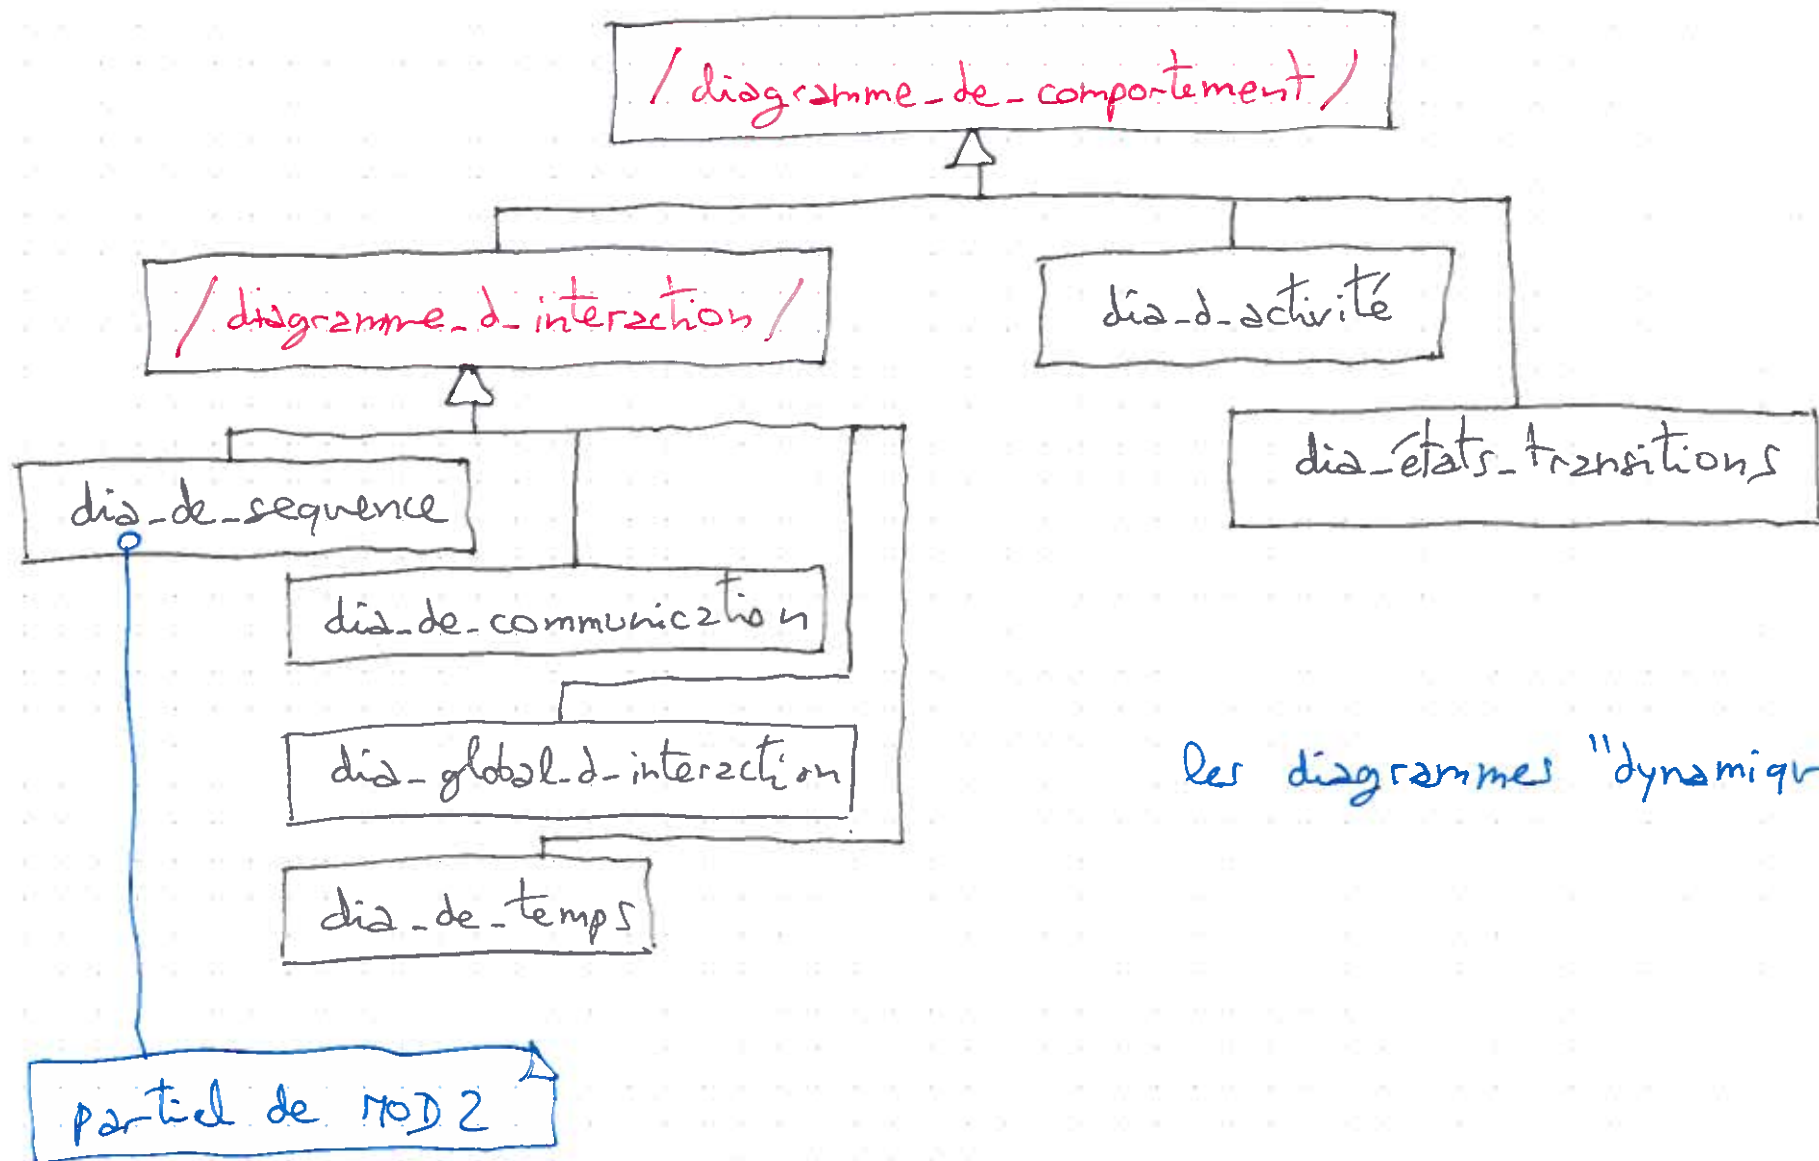 / diagramme_de_comportement /
/ diagramme_d_interaction /
dia_d_activité
dia_états_transitions
dia_de_sequence
dia_de_communication
dia_global_d_interaction
les diagrammes "dynamiqu
dia_de_temps
partiel de MOD 2